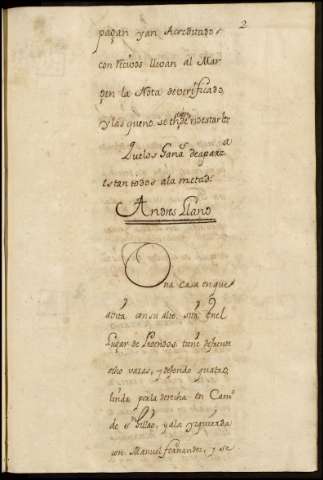 2
pagan y an Acreditado
con Recivos llevan al Mar
gen la Nota de verificado,
y las que no se
Que los Gan.s de aparz.a
estan todos a la metad.
Andres Llano
Una casa en que
avita con su alto sita en el
Lugar de tiene de frente
ocho varas, y de fondo quatro,
linda por la derecha en Cam.o
de y a la yzquierda
con Manuel fernandez, y se